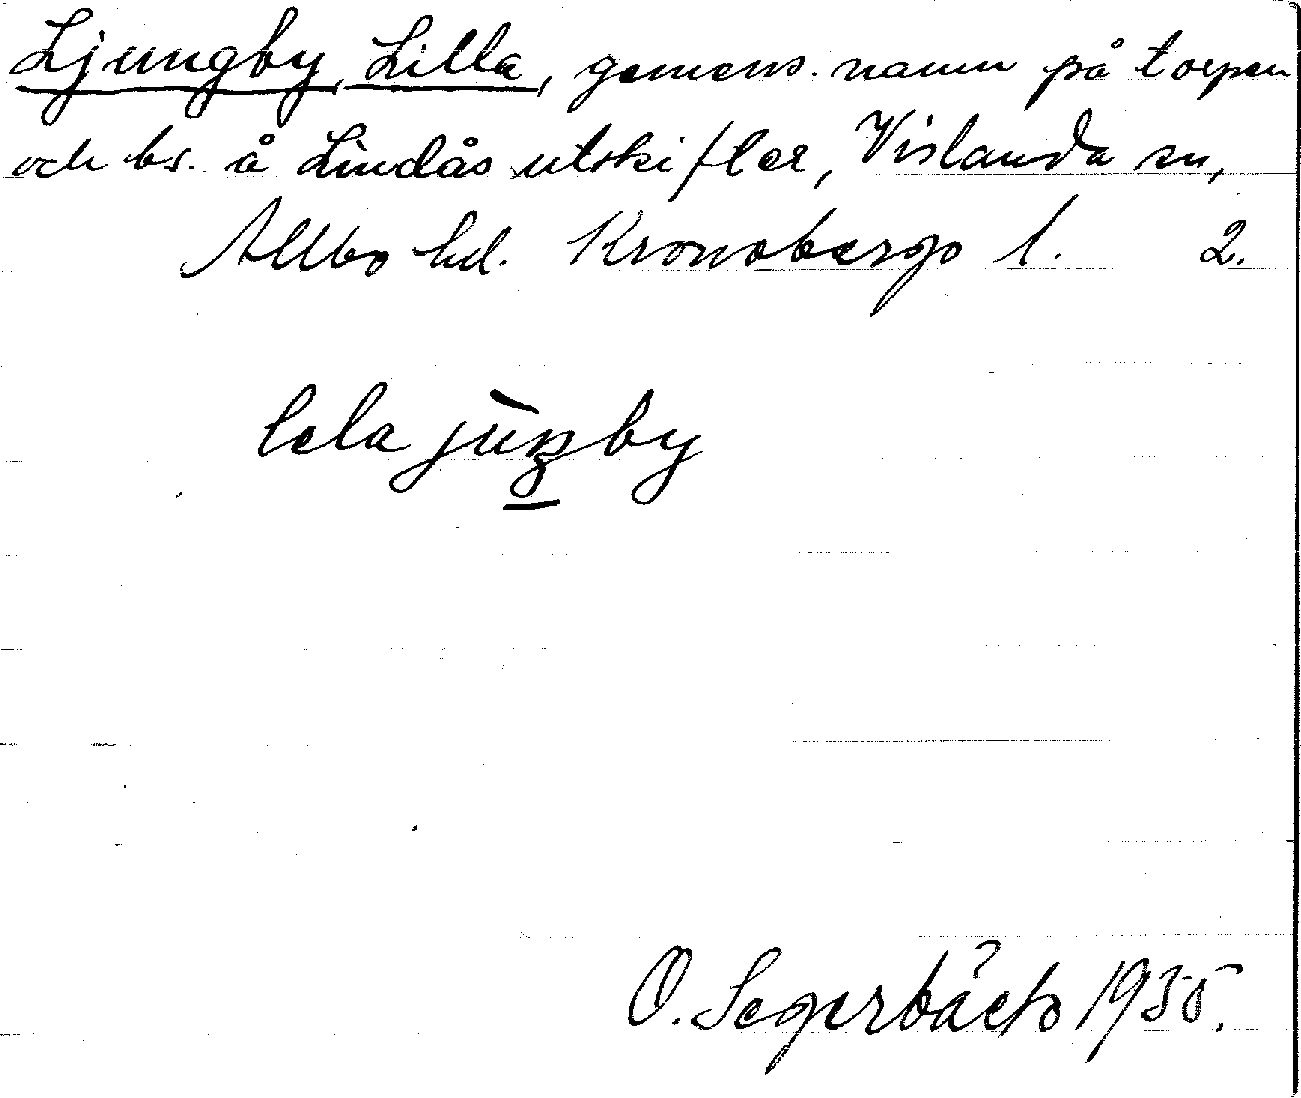 Ljungby, Lilla, gemens. namn på torpen
och bs. å Lindås utskifter, Vislanda sn,
Allbo hd. Kronobergs l. 2.
lela jùŋby
O. Segerbäck 1935.